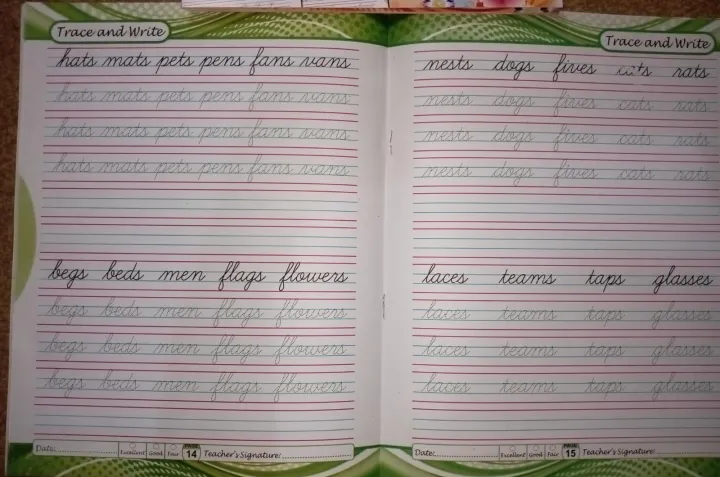 Trace and Write
hats mats pets pens fans vans
hats mats pets pens fans vans
hats mats pets pens fans vans
hats mats pets pens fans vans
begs beds men flags flowers
begs beds men flags flowers
begs beds men flags flowers
begs beds men flags flowers
Date:
Excellent Good Fair PAGE 14 Teacher's Signature:
Trace and Write
nests dogs fives cats rats
nests dogs fives cats rats
nests dogs fives cats rats
nests dogs fives cats rats
laces teams taps glasses
laces teams taps glasses
laces teams taps glasses
laces teams taps glasses
Date:
Excellent Good Fair PAGE 15 Teacher's Signature: